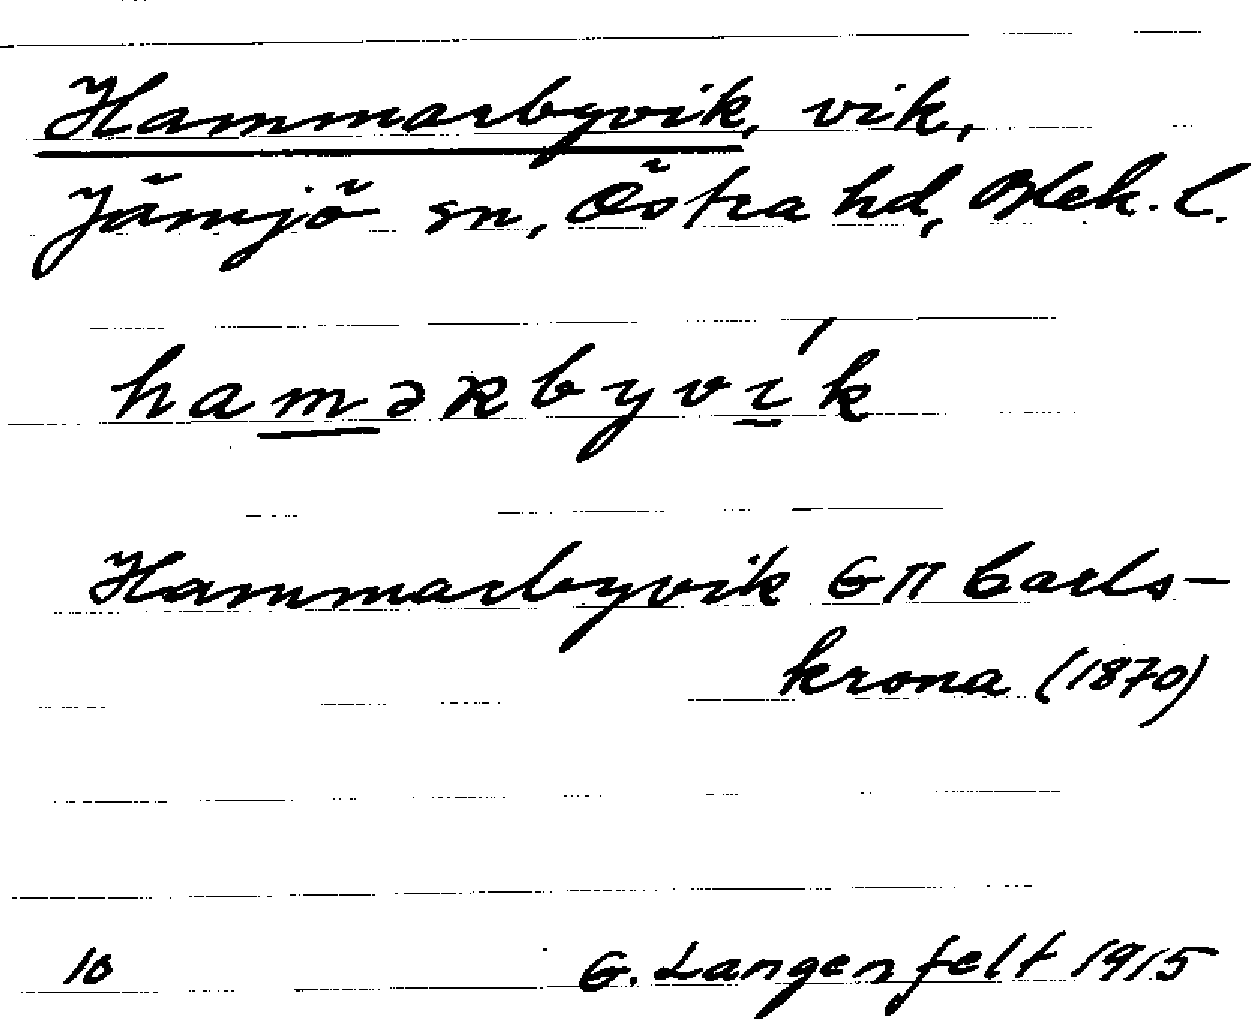 Hammarbyvik, vik,
Jämjö sn, Östra hd, Blek. l.
hamərbyvík
Hammarbyvik GII Carls-
krona (1870)
10 G. Langenfelt 1915